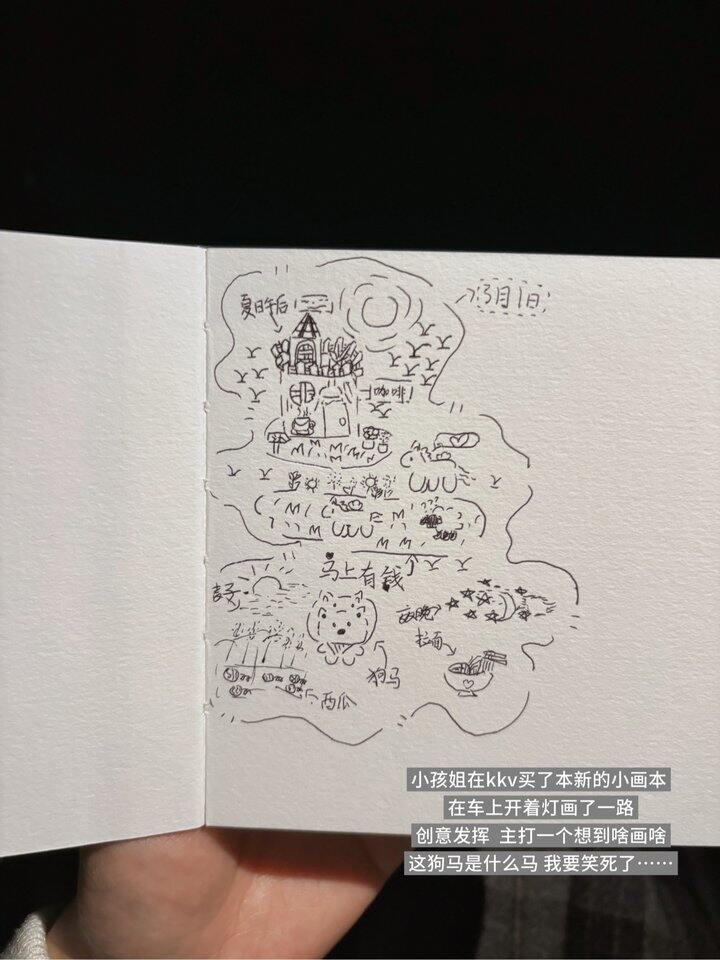 3月1日
夏日午后
咖啡
马上有钱
夜晚
拉面
狗马
西瓜
小孩姐在kkv买了本新的小画本
在车上开着灯画了一路
创意发挥 主打一个想到啥画啥
这狗马是什么马 我要笑死了……